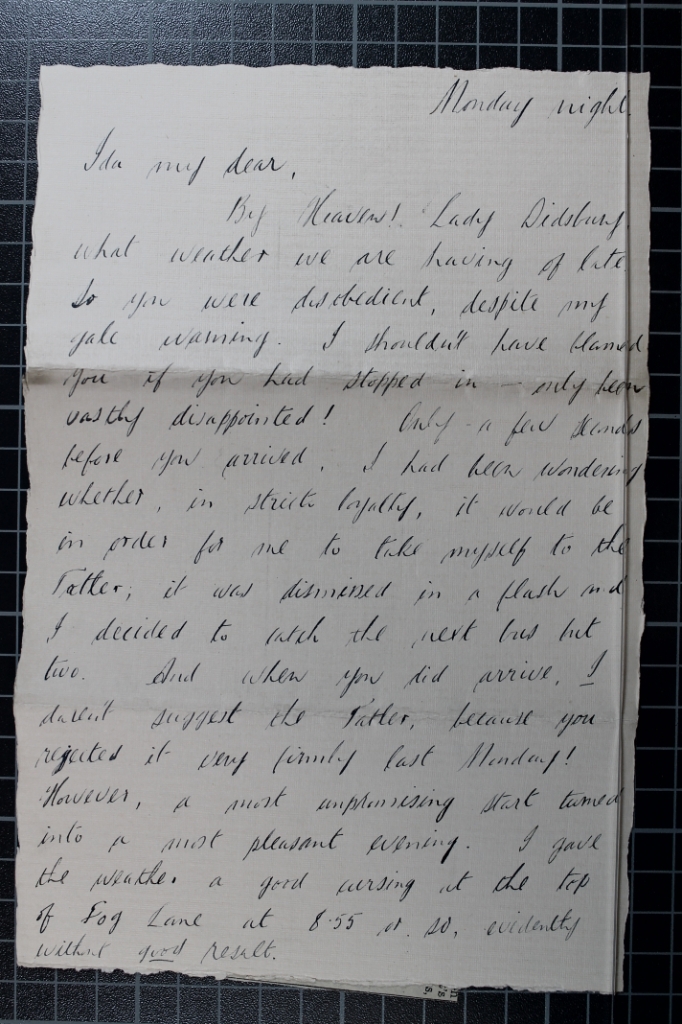 Monday night.
Ida my dear,
By Heavens! Lady Didsbury
what weather we are having of late.
So you were disobedient, despite my
gale warning. I shouldn't have blamed
you if you had stopped in – only been
vastly disappointed! Only a few seconds
before you arrived, I had been wondering
whether, in strict loyalty, it would be
in order for me to take myself to the
Tatler; it was dismissed in a flash and
I decided to catch the next bus but
two. And when you did arrive, I
daren't suggest the Tatler, because you
rejected it very firmly last Monday!
However, a most unpromising start turned
into a most pleasant evening. I gave
the weather a good cursing at the top
of Fog Lane at 8.55 or so, evidently
without good result.